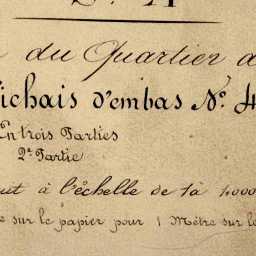 du Quartier d
ichais d'embas N.º 4
En trois Parties
2.e Partie
ut à l'échelle de 1 à 4000
sur le papier pour 1 Mètre sur le